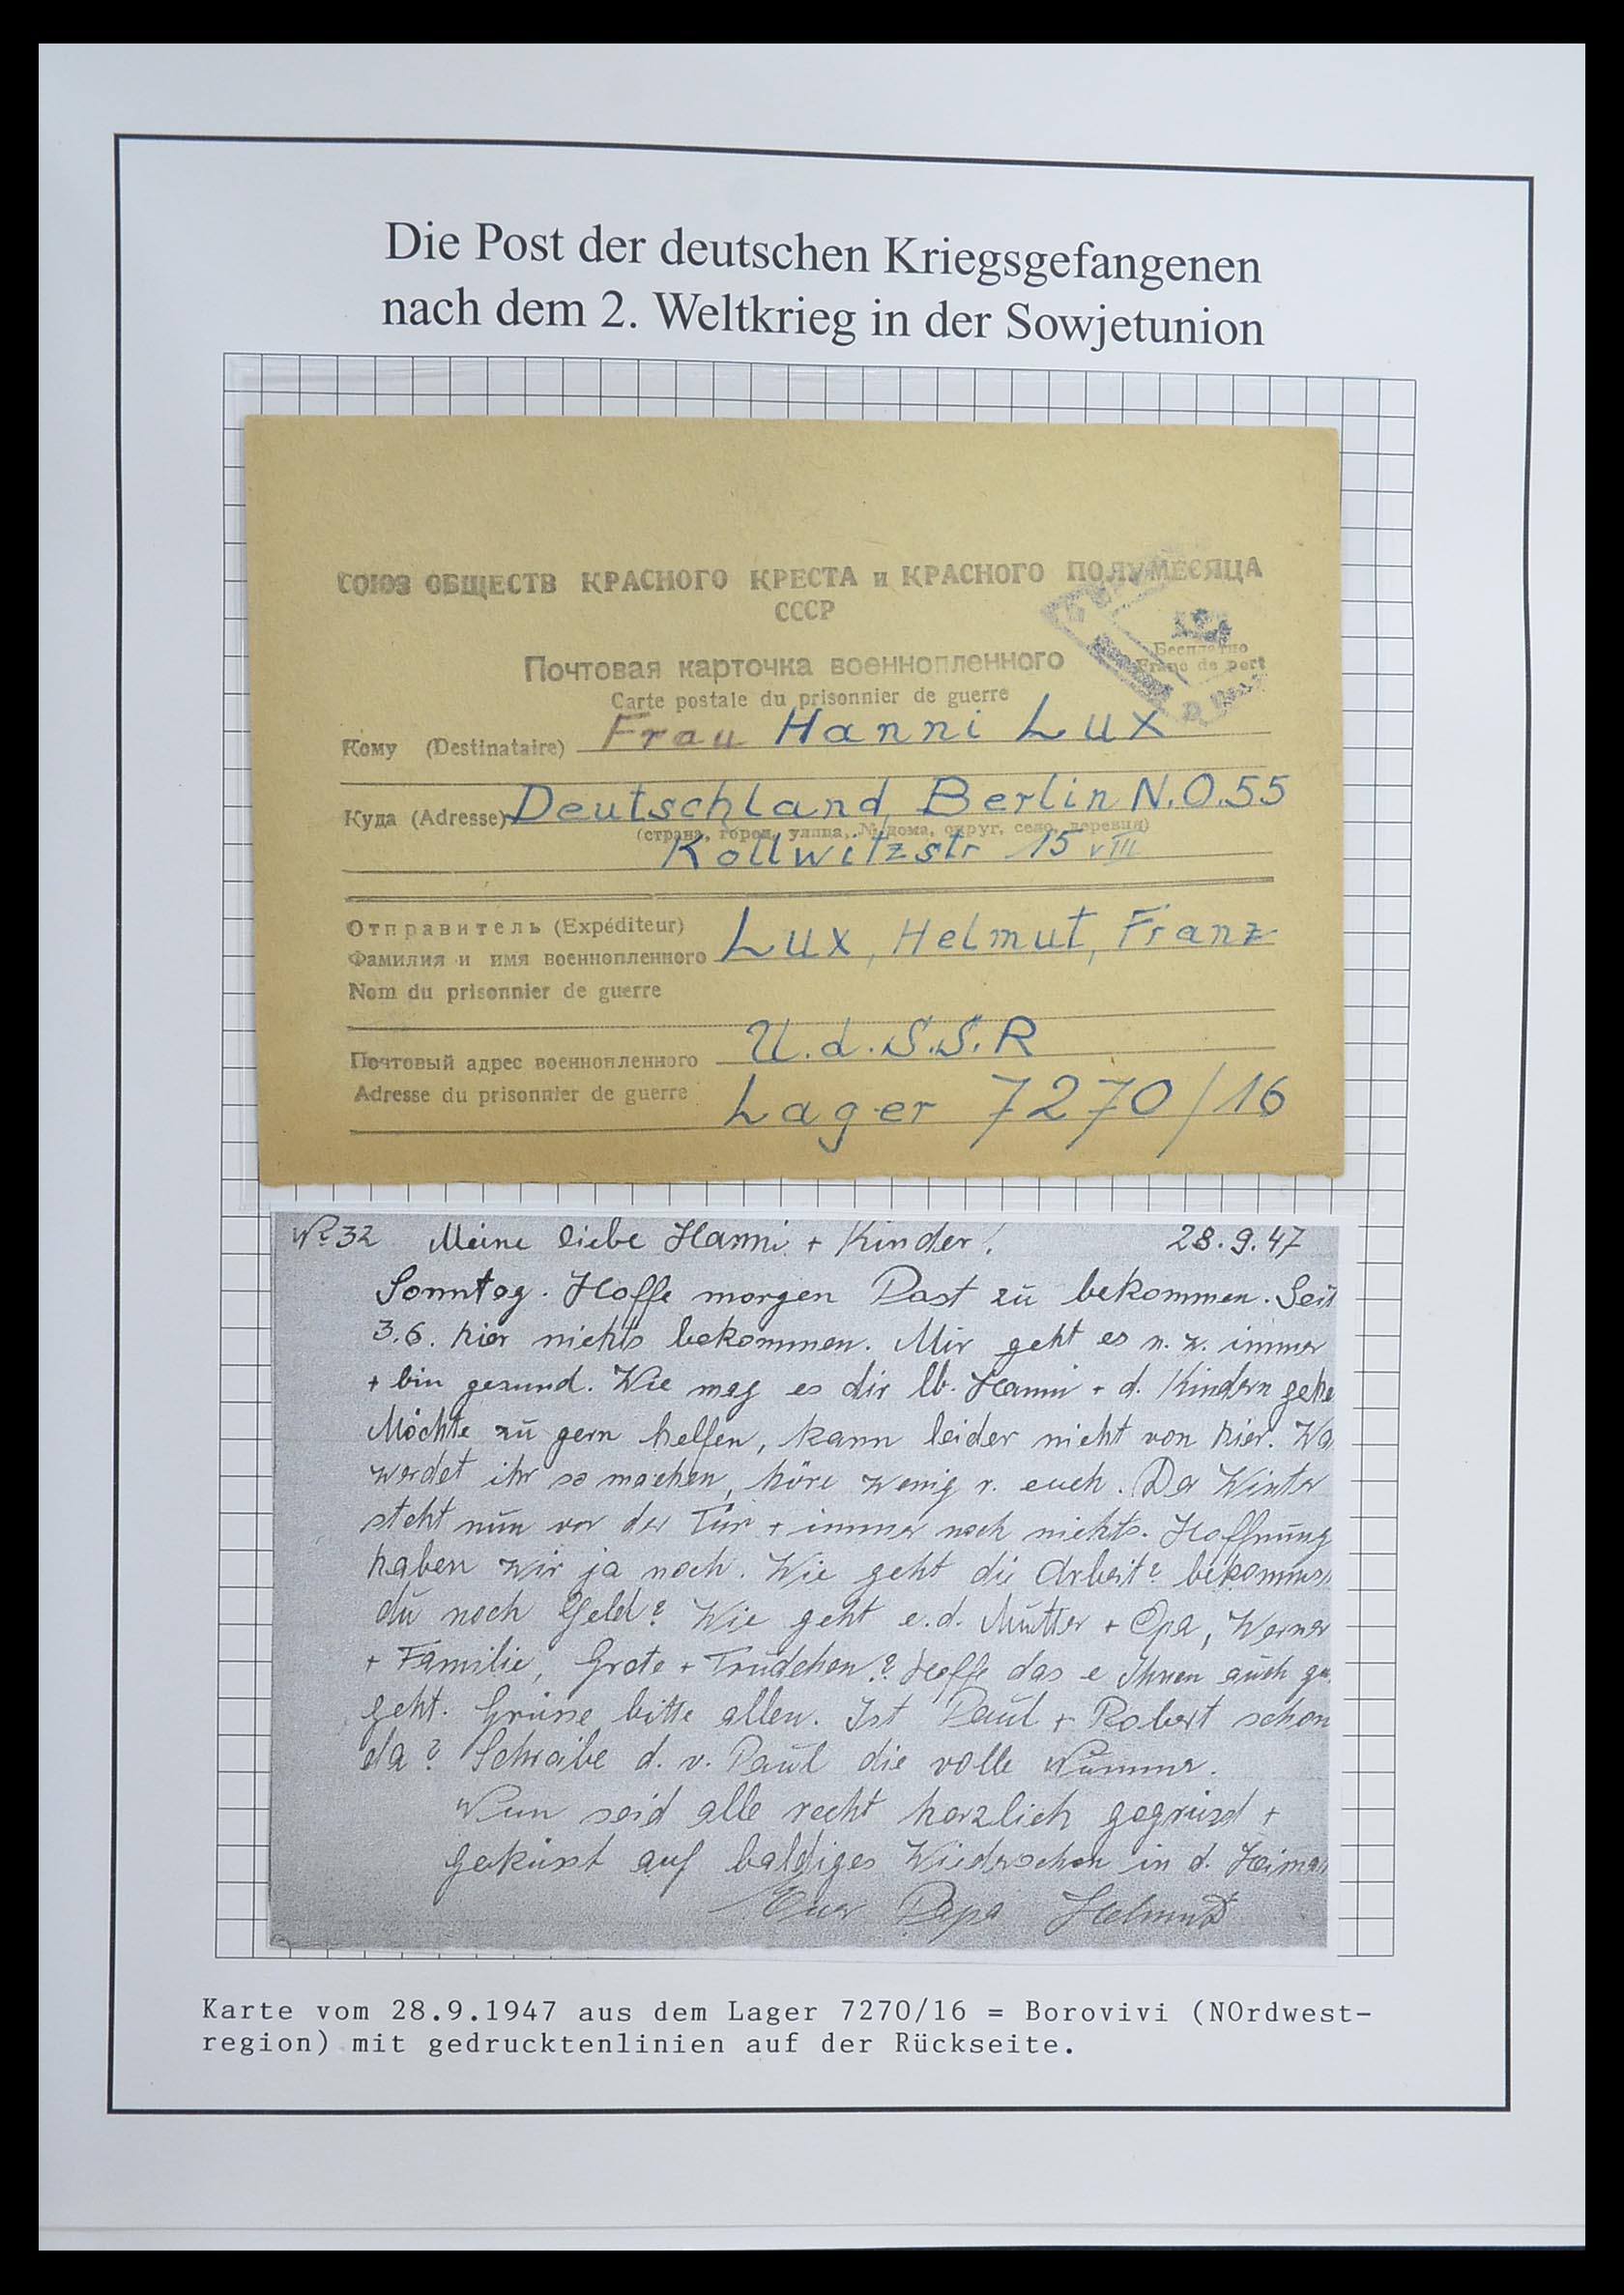 Die Post der deutschen Kriegsgefangenen
nach dem 2. Weltkrieg in der Sowjetunion
СОЮЗ ОБЩЕСТВ КРАСНОГО КРЕСТА и КРАСНОГО ПОЛУМЕСЯЦА
СССР
Бесплатно
Franc de port
Почтовая карточка военнопленного
Carte postale du prisonnier de guerre
Кому (Destinataire) Frau Hanni Lux
Куда (Adresse) Deutschland, Berlin N.O.55
(страна, город, улица, № дома, округ, село, деревня)
Kollwitzstr 15 v III
Отправитель (Expéditeur)
Фамилия и имя военнопленного Lux, Helmut, Franz
Nom du prisonnier de guerre
U.d.S.S.R
Почтовый адрес военнопленного
Adresse du prisonnier de guerre Lager 7270/16
No 32 Meine liebe Hanni + Kinder! 28.9.47
Sonntag. Hoffe morgen Post zu bekommen. Seit
3.6. hier nichts bekommen. Mir geht es n. w. immer
+ bin gesund. Wie mag es dir lb. Hanni + d. Kindern gehe
Möchte zu gern helfen, kann leider nicht von hier. Wa
werdet ihr so machen, höre wenig v. euch. Der Winter
steht nun vor der Tür + immer noch nichts. Hoffnung
haben wir ja noch. Wie geht die Arbeit? bekommst
du noch Geld? Wie geht e.d. Mutter + Opa, Werner
+ Familie, Grete + Trudchen? Hoffe das e Ihnen auch gu
geht. Grüsse bitte allen. Ist Paul + Robert schon
da? Schreibe d. v. Paul die volle Nummer.
Nun seid alle recht herzlich gegrüsd +
geküsst auf baldiges Wiedersehen in d. Heimat
Euer Papa Helmut
Karte vom 28.9.1947 aus dem Lager 7270/16 = Borovivi (NOrdwest-
region) mit gedrucktenlinien auf der Rückseite.